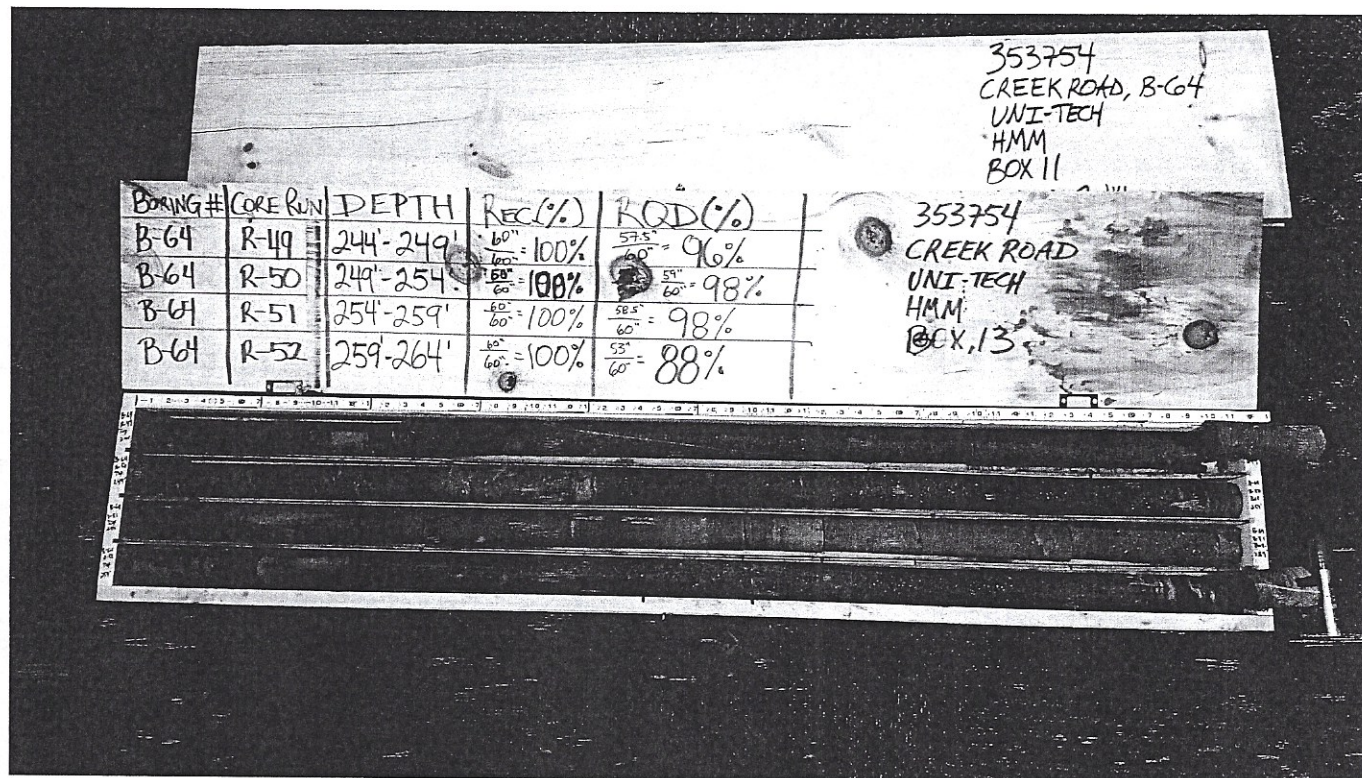 353754
CREEK ROAD, B-64
UNI-TECH
HMM
BOX 11
BORING # CORE RUN DEPTH REC.(%) RQD(%)
B-64 R-49 244'-249' 60"/60" = 100% 57.5"/60" = 96%
B-64 R-50 249'-254' 60"/60" = 100% 59"/60" = 98%
B-64 R-51 254'-259' 60"/60" = 100% 58.5"/60" = 98%
B-64 R-52 259'-264' 60"/60" = 100% 53"/60" = 88%
353754
CREEK ROAD
UNI-TECH
HMM
BOX, 13